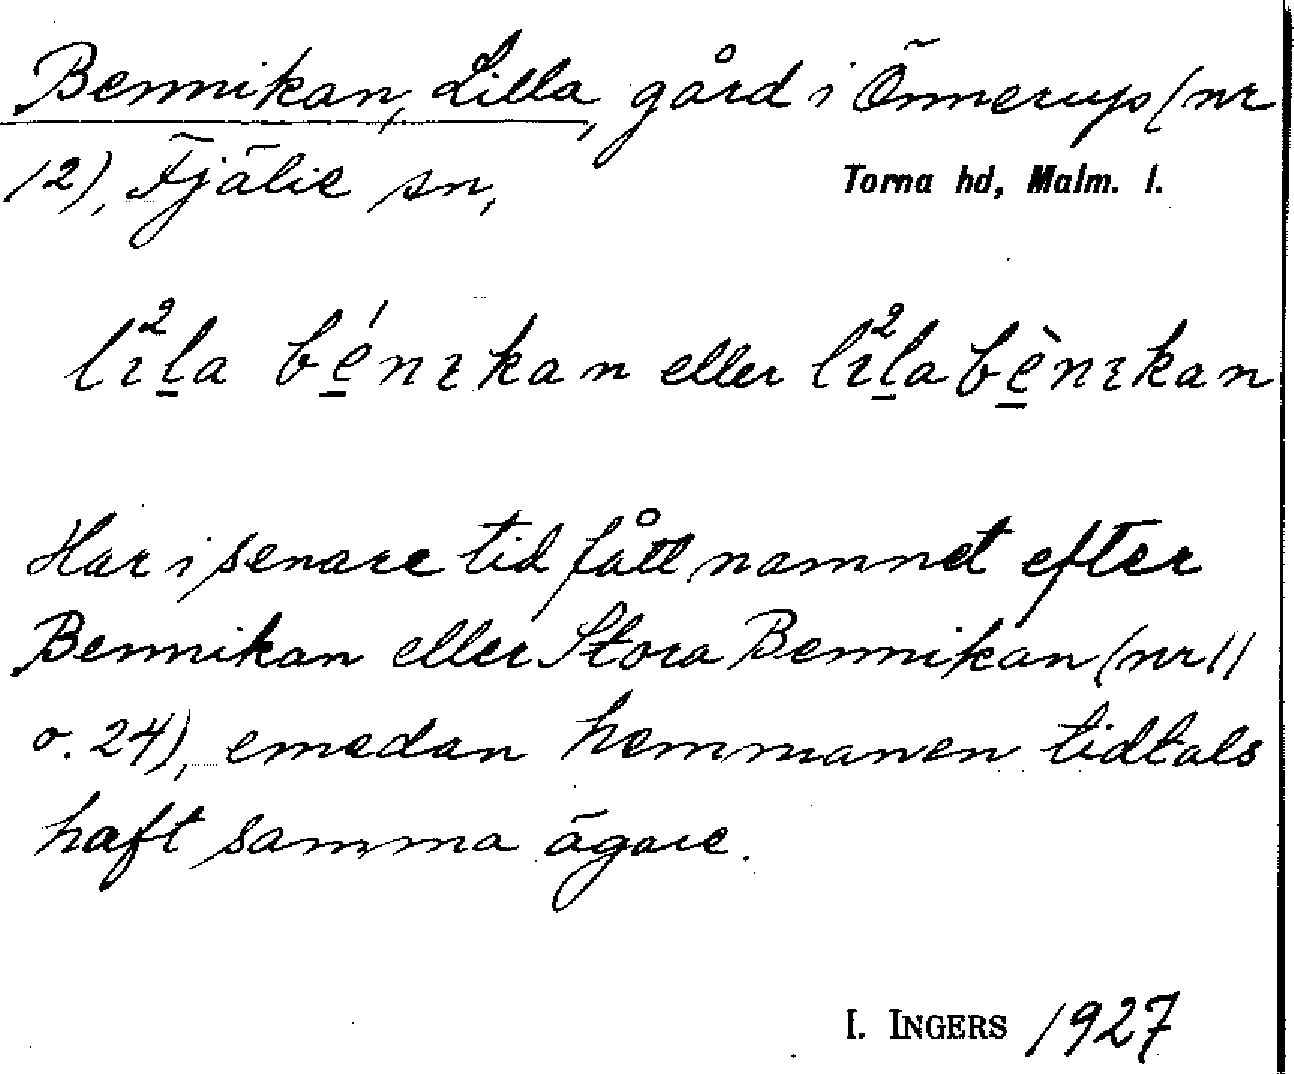 Bennikan, Lilla, gård i Önnerup (nr
12), Fjälie sn,
Torna hd, Malm. l.
lɪ²l̲a bé̲nɪkan eller lɪ²l̲abè̲nɪkan
Har i senare tid fått namnet efter
Bennikan eller Stora Bennikan (nr 11
o. 24), emedan hemmanen tidtals
haft samma ägare.
I. INGERS 1927